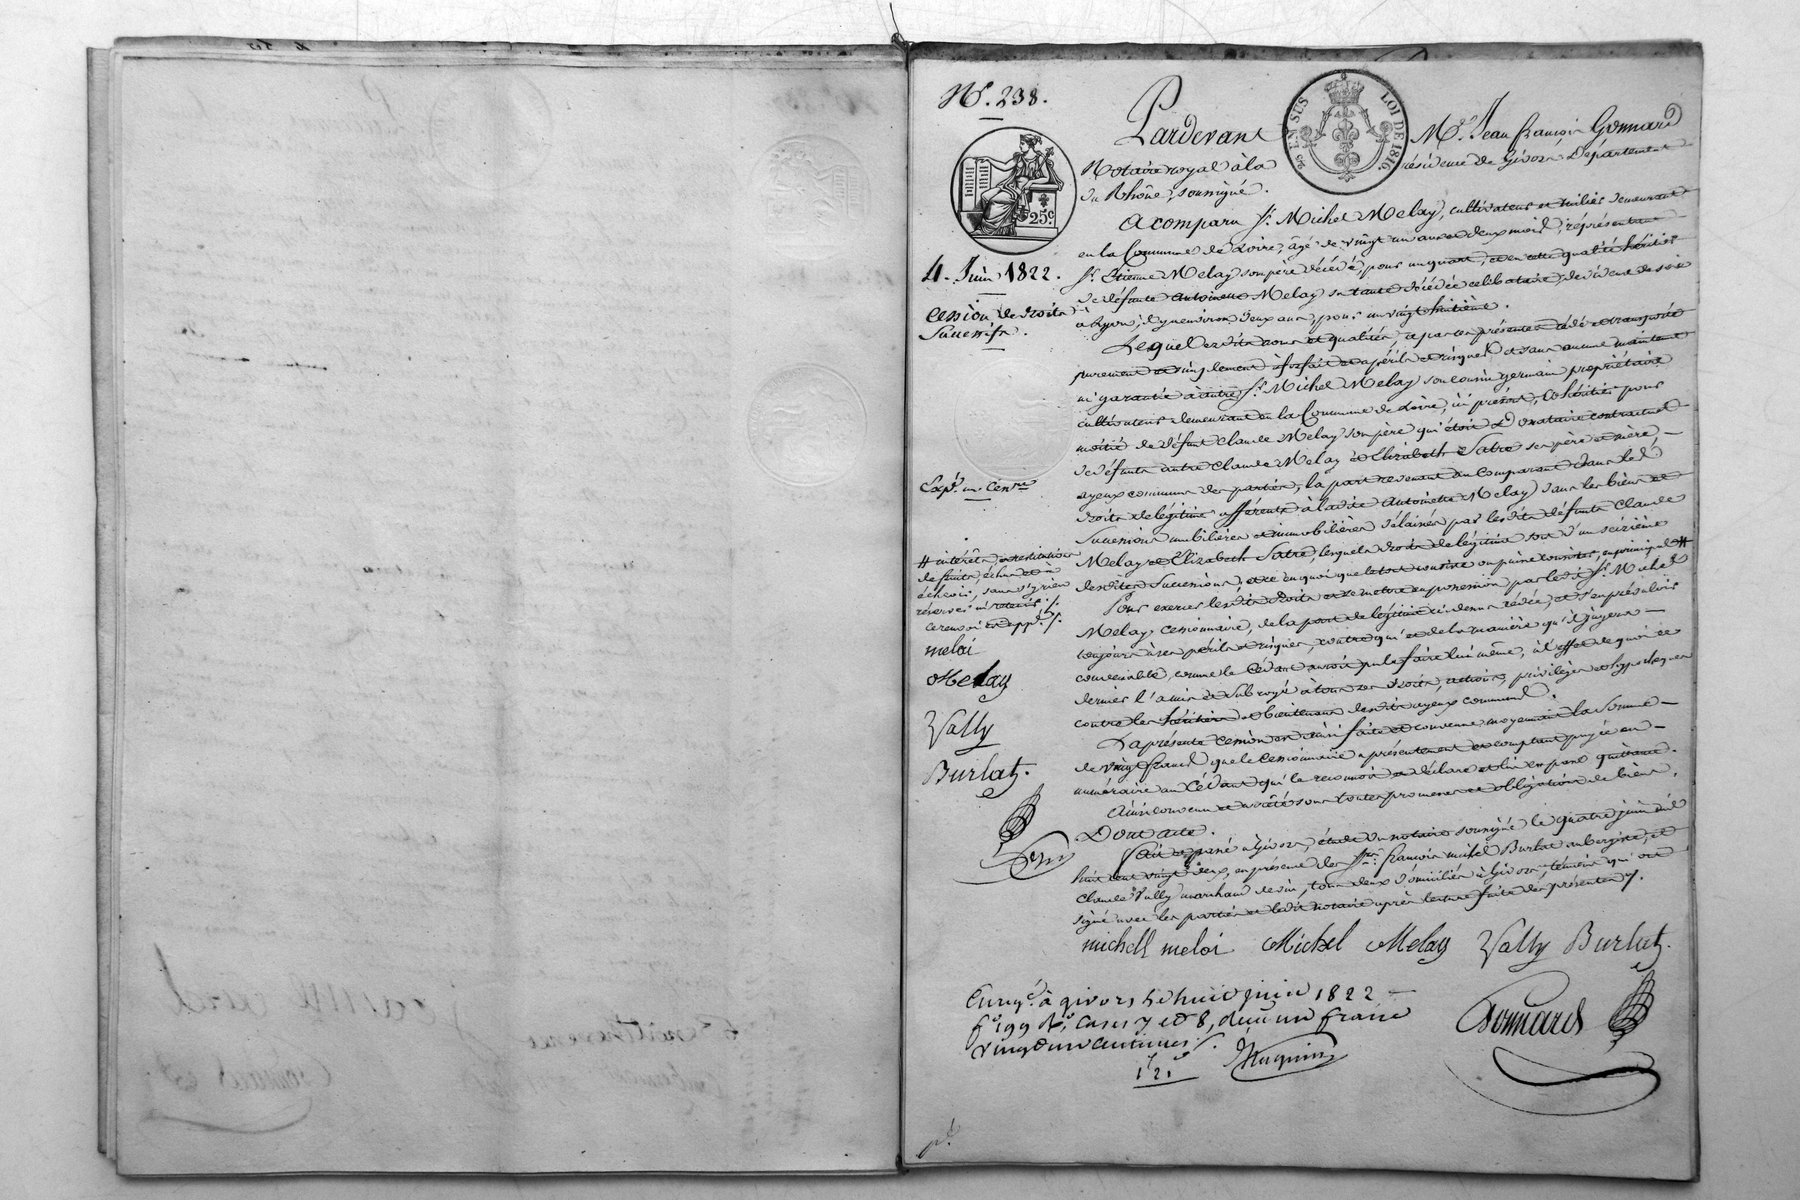 N°. 238.
Pardevant Me. Jean françois Gonnard
EN SUS LOI DE 1816.
Notaire royal à la résidence de Givors Département
du Rhône, soussigné.
25c
A comparu Sr. Michel Melay, cultivateur et milier demeurant
en la Commune de Loire, âgé de vingt un ans et deux mois, représentant
4. Juin 1822.
Sr. Etienne Melay son père décédé, pour un quart, et en cette qualité héritier
de défunte Antoinette Melay sa tante décédée célibataire, dévideuse de soie
Cession de droits
Successifs.
à Lyon, il y a environ deux ans, pour un vingt huitième.
Lequel esdits noms et qualités, a par ces présentes cédé et transporté
purement et simplement à forfait et à périls et risques et sans aucune maintenue
ni garantie à autre Sr. Michel Melay son cousin germain propriétaire
cultivateur demeurant en la Commune de Loire, ici présent, cohéritier pour
moitié de défunt Claude Melay son père qui étoit Donataire contractuel
de défunts autre Claude Melay et Elizabeth Satre ses père et mère,
ayeux communs des parties, la part revenant au comparant dans les
Expé. au Cenre
droits de légitime afférents à ladite Antoinette Melay dans les biens et
Successions mobilières et immobilières délaissés par lesdits défunts Claude
Melay et Elizabeth Satre, lesquels droits de légitime sont d'un seizième
desdites Successions, et en quoi que le tout consiste ou puisse consister, en principal #
# intérêts, restitution
de fruits, échus et à
échoir, sans s'y rien
réserver ni retenir ./.
ce renvoi est appé. /.
Pour exercer lesdits droits et se mettre en possession par ledit Sr. Michel
Melay cessionnaire, de la part de légitime ci dessus cédée, et s'en prévaloir
toujours à ses périls et risques, contre qui et de la manière qu'il jugera
convenable, comme le Cédant auroit pu le faire lui même, à l'effet de quoi ce
dernier l'a mis et subrogé à tous ses droits, actions, privilèges et hypothèques
contre les héritiers et bientenans desdits ayeux communs.
meloi
Melay
Vally
Burlat.
La présente cession est ainsi faite et convenue moyennant la somme
de vingt francs que le Cessionnaire a présentement et comptant payée en
numéraire au Cédant qui le reconnoit et déclare et lui en passe quittance.
Ainsi convenu et arrêté sous toutes promesses et obligations de biens.
Dont acte.
Fait et passé à Givors, étude du notaire soussigné le quatre juin mil
huit cent vingt deux, en présence des Srs. françois michel Burlat aubergiste, et
Claude Vally marchand de vin, tous deux domiciliés à Givors, témoins qui ont
signé avec les parties et ledit notaire après lecture faite des présentes /.
michell meloi Michel Melay Vally Burlat.
Enregé. à givors le huit juin 1822
fo. 199 Vo. cases 7 et 8, reçu un franc
vingt un centimes.
Gonnard